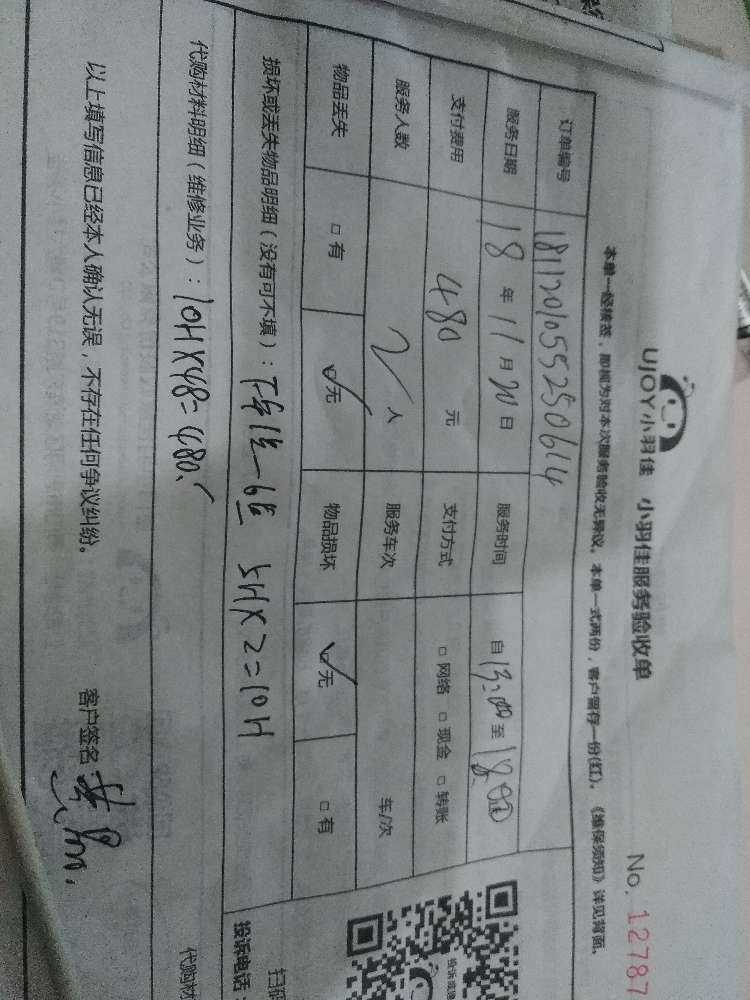 UJOY小羽佳 小羽佳服务验收单
No. 12787
本单一经核签，即视为对本次服务验收无异议。本单一式两份，客户留存一份(红)。《维保须知》详见背面。
订单编号 181120105525 0614
服务日期 18 年 11 月 20 日 服务时间 自 13:00 至 18:00
支付费用 480 元 支付方式 □ 网络 □ 现金 □ 转账
服务人数 2 人 服务车次 车/次
物品丢失 □ 有 ☑ 无 物品损坏 ☑ 无 □ 有
损坏或丢失物品明细（没有可不填）： 5H×2=10H
代购材料明细（维修业务）：10H×48=480.
代购材
以上填写信息已经本人确认无误，不存在任何争议纠纷。
客户签名
投诉电话：